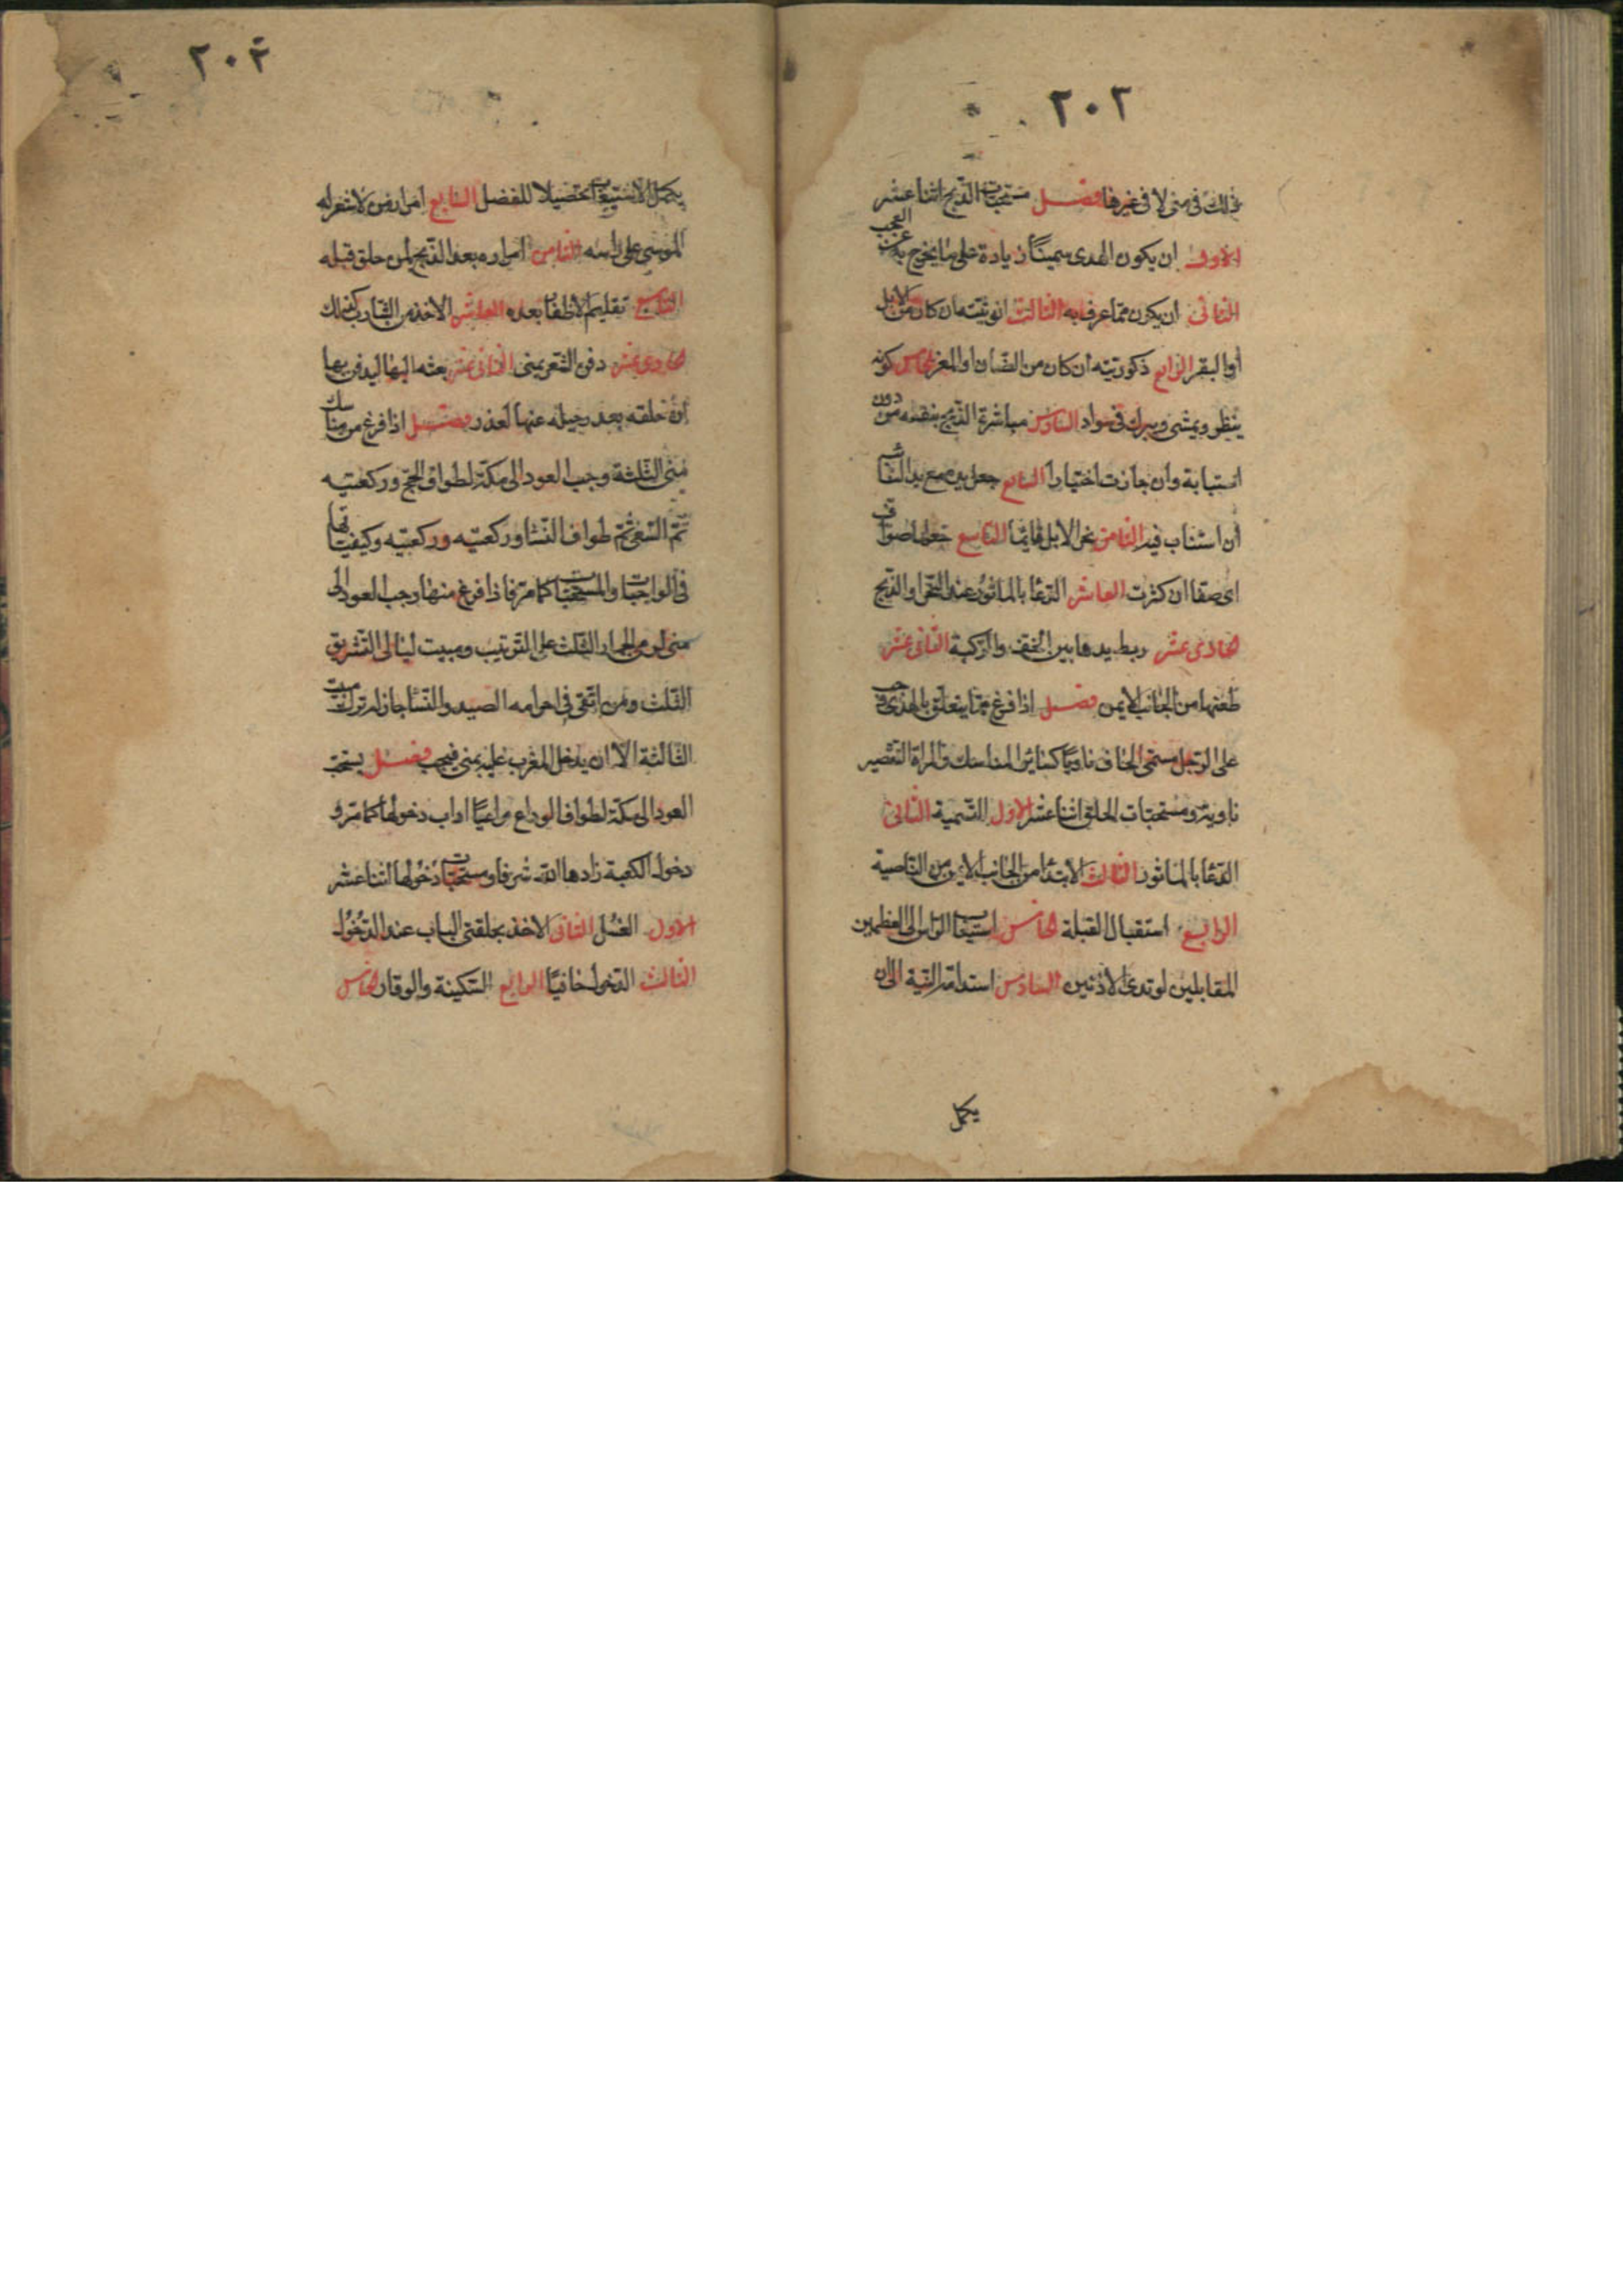 ٢٠٢
ذلك فى منى لا فى غيرها فصل مستحبات الذبح اثنا عشر
الاول ان يكون الهدى سمينًا زيادة على ما يخرج به عن العجب
الثانى ان يكون مما عرف به الثالث انوثيته ان كان من الابل
او البقر الرابع ذكوريته ان كان من الضان او المعز الخامس كونه
ينظر ويمشى ويبرك فى سواد السادس مباشرة الذبح بنفسه من دون
استنابة وان جازت اختيارا السابع جعل يده مع يد النائب
ان استناب فيه الثامن نحر الابل قائمًا التاسع جعلها صواف
اى صفا ان كثرت العاشر الدعا بالماثور عند النحر او الذبح
الحادى عشر ربط يدها بين الخف والركبة الثانى عشر
طعنها من الجانب الايمن فصل اذا فرغ مما يتعلق بالهدى وجب
على الرجل مستحى الحاف ناويًا كسائر المناسك والمراة التقصير
ناوية ومستحبات الحلق اثنا عشر الاول التسمية الثانى
الدعا بالماثور الثالث الابتدا من الجانب الايمن من الناصية
الرابع استقبال القبلة الخامس استيعاب الراس الى العظمين
المقابلين لوتدى الاذنين السادس استدامة النية الى ان
يكمل
٢٠٣
يكمل الاستيعاب تحصيلا للفضل السابع امرار من لا شعر له
الموسى على راسه الثامن امراره بعد الذبح لمن حلق قبله
التاسع تقليم الاظفار بعده العاشر الاخذ من الشارب كذلك
الحادى عشر دفن الشعر بمنى الثانى عشر بعثه اليها ليدفن بها
ان حلقه بعد رحيله عنها لعذر فصل اذا فرغ من مناسك
منى الثلثة وجب العود الى مكة لطواف الحج وركعتيه
ثم السعى ثم طواف النسا وركعتيه وركعتيه وكيفياتها
فى الواجبات والمستحبات كما مر فاذا فرغ منها وجب العود الى
منى لرمى الجمار الثلث على الترتيب ومبيت ليالى التشريق
الثلث ومن اتقى فى احرامه الصيد والنسا جاز له ترك مبيت
الثالثة الا ان يدخل المغرب عليه بمنى فيجب فصل يستحب
العود الى مكة لطواف الوداع مراعيًا اداب دخولها كما مر و
دخول الكعبة زادها الله شرفا ومستحبات دخولها اثنا عشر
الاول الغسل الثانى الاخذ بحلقتى الباب عند الدخول
الثالث الدخول حافيًا الرابع السكينة والوقار الخامس